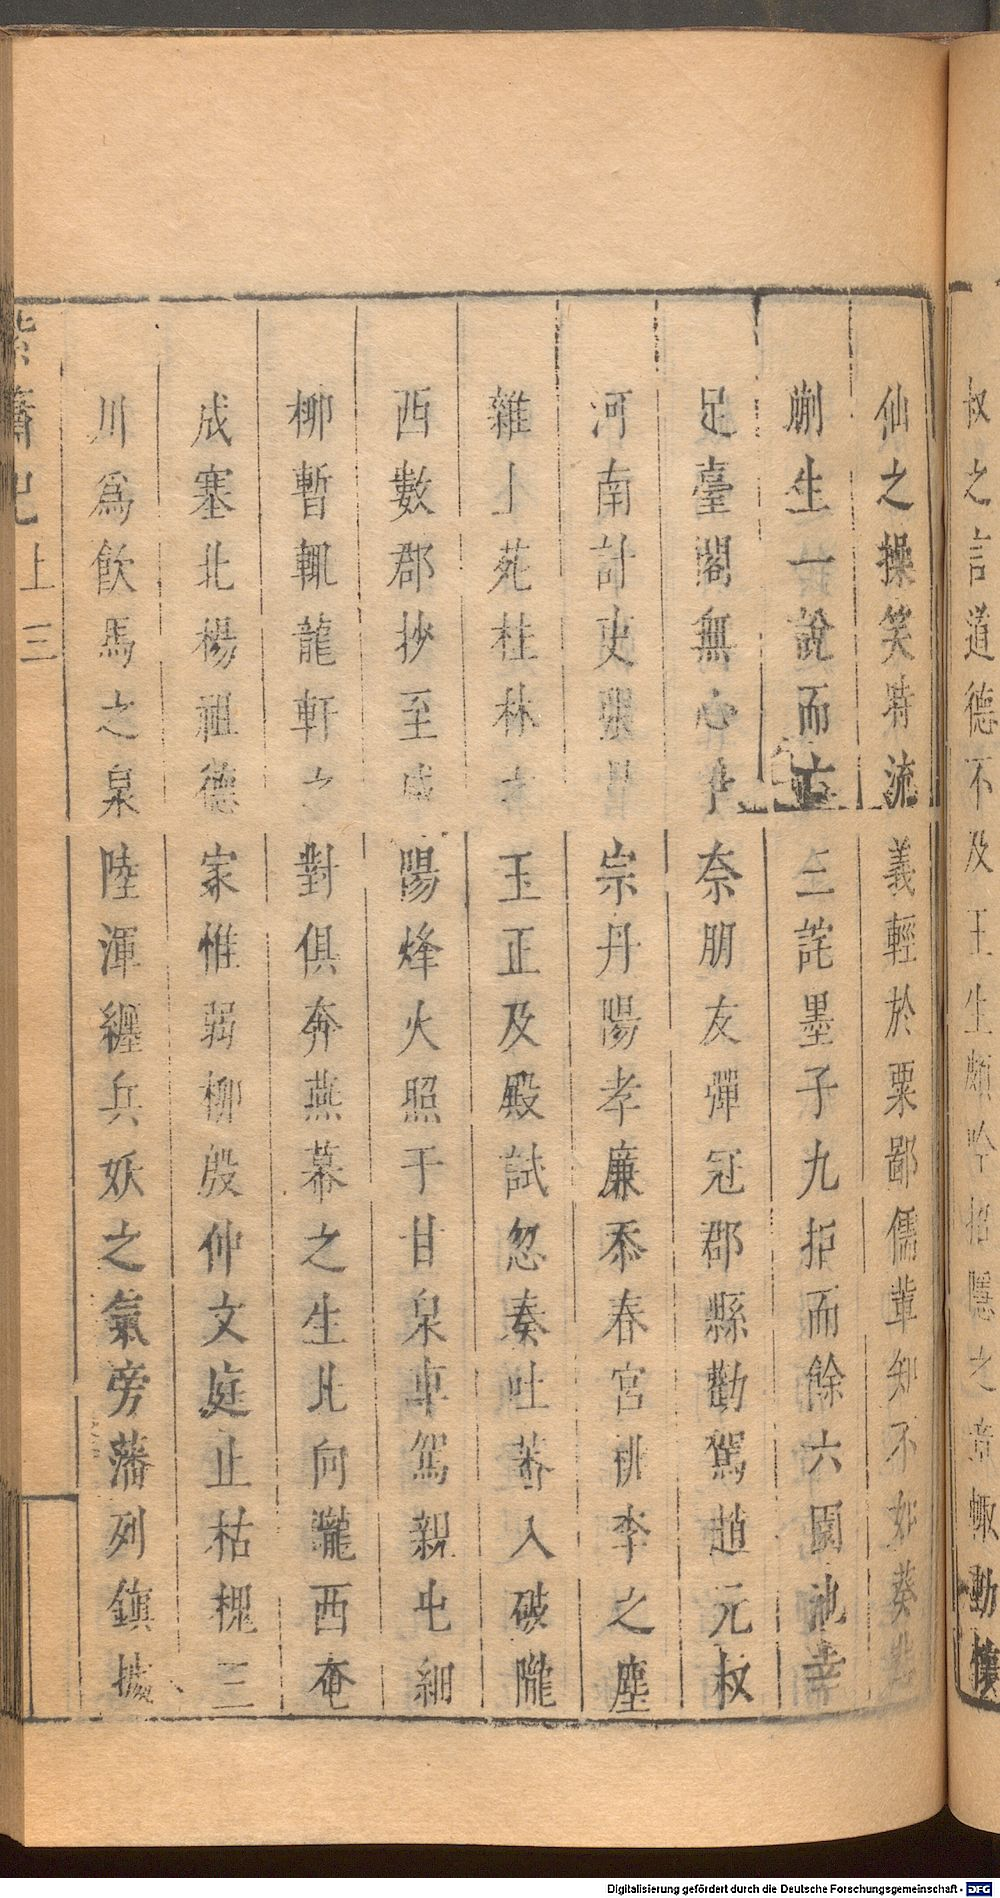 叔之言道德不及王生頗吟招隱之章輙動懷
仙之操笑時流義輕於粟鄙儒輩知不如葵
蒯生一說而亡三詫墨子九拒而餘六園池幸
足臺閣無心爭奈朋友彈冠郡縣勸駕趙元叔
河南計吏張宗丹陽孝廉忝春宮桃李之塵
雜上苑桂林之玉正及殿試忽奏吐蕃入破隴
西數郡抄至咸陽烽火照于甘泉車駕親屯細
柳暫輟龍軒之對俱奔燕幕之生北向隴西奄
成塞北楊祖德家惟弱柳殷仲文庭止枯槐三
川為飲馬之泉陸渾纏兵妖之氣旁藩列鎮據
紫簫記 上 三
Digitalisierung gefördert durch die Deutsche Forschungsgemeinschaft - DFG